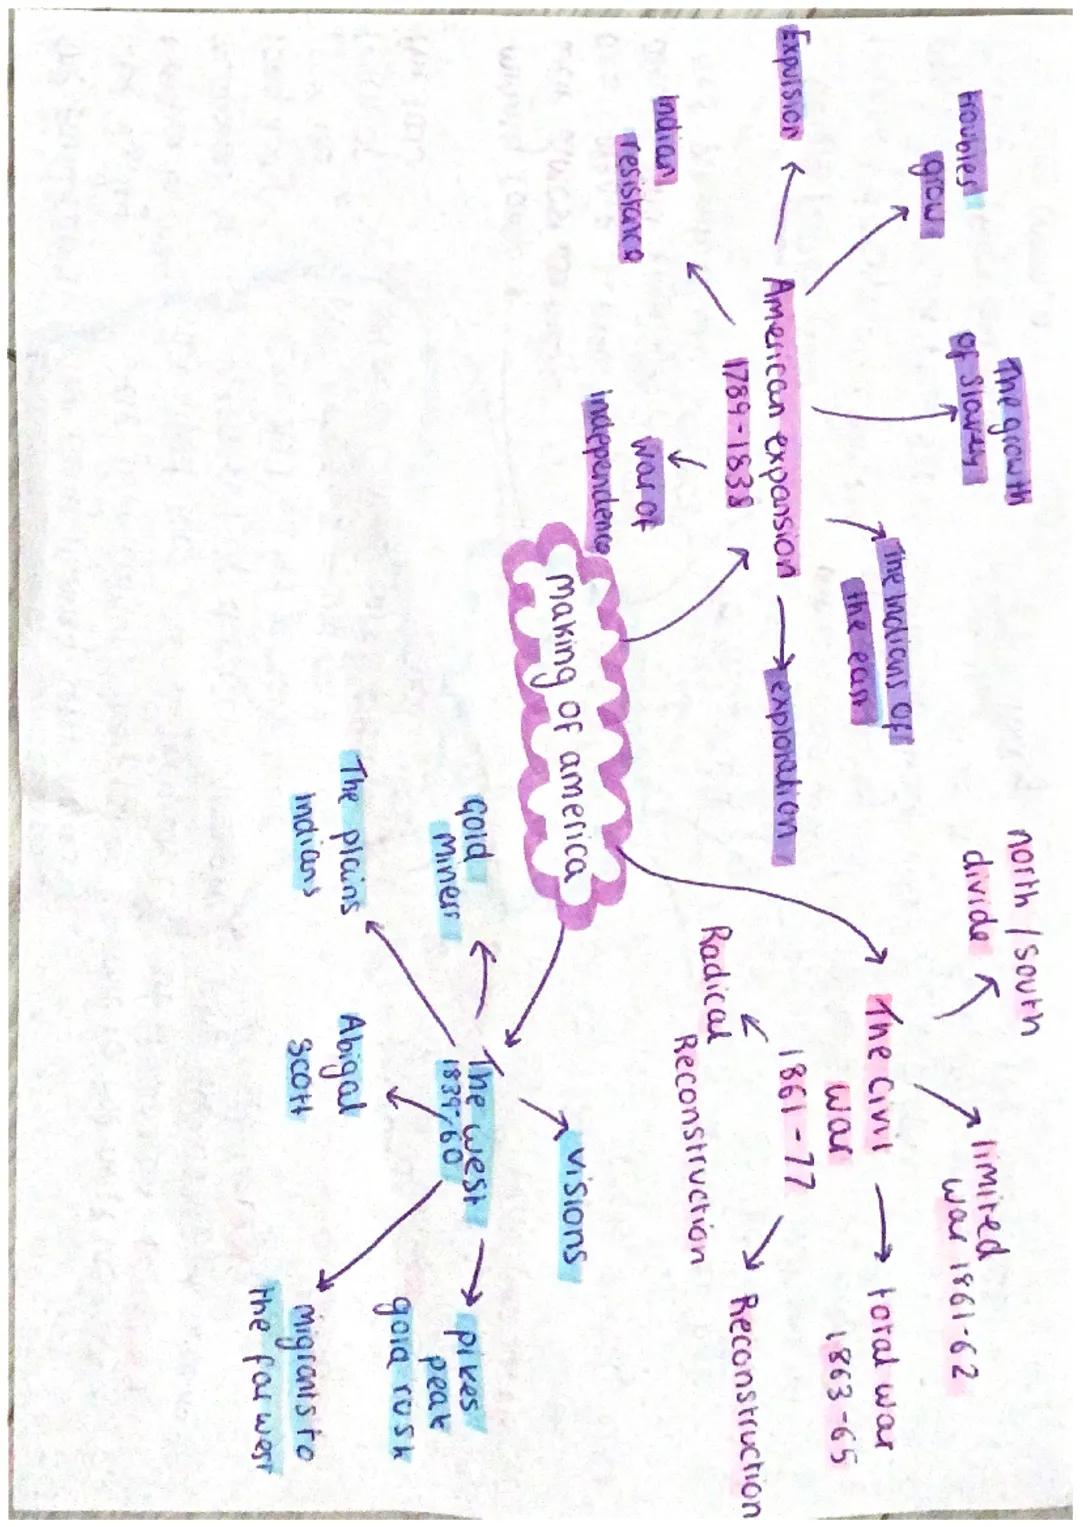 making of america
American expansion
1789-1838
Expulsion
troubles
grow
The growth
of slavery
The Indians of
the ean
exploration
war of
independence
Indian
resistance
The Civil
war
1861-77
north / south
divide
limited
war 1861-62
total war
1863-65
Reconstruction
Radical
Reconstruction
The west
1839-60
visions
pikes
peak
gold rush
migrants to
the far west
Abigal
Scott
The plains
Indians
Gold
Miners